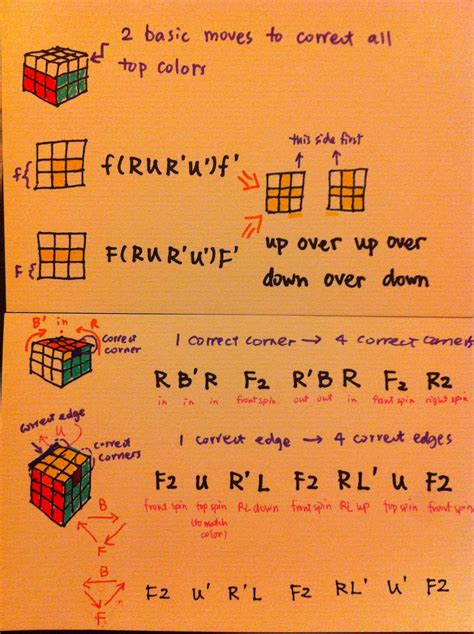 2 basic moves to correct all
top colors
this side first
f
f(RUR'U')f'
F
F(RUR'U')F'
up over up over
down over down
B' in R
correct
corner
1 correct corner → 4 correct corners
R B' R F2 R'B R F2 R2
in in in front spin out out in front spin right spin
correct edge
U
correct
corners
1 correct edge → 4 correct edges
F2 U R'L F2 RL' U F2
front spin top spin RL down front spin RL up top spin front spin
(to match
color)
B
F
B
F
F2 U' R'L F2 RL' U' F2